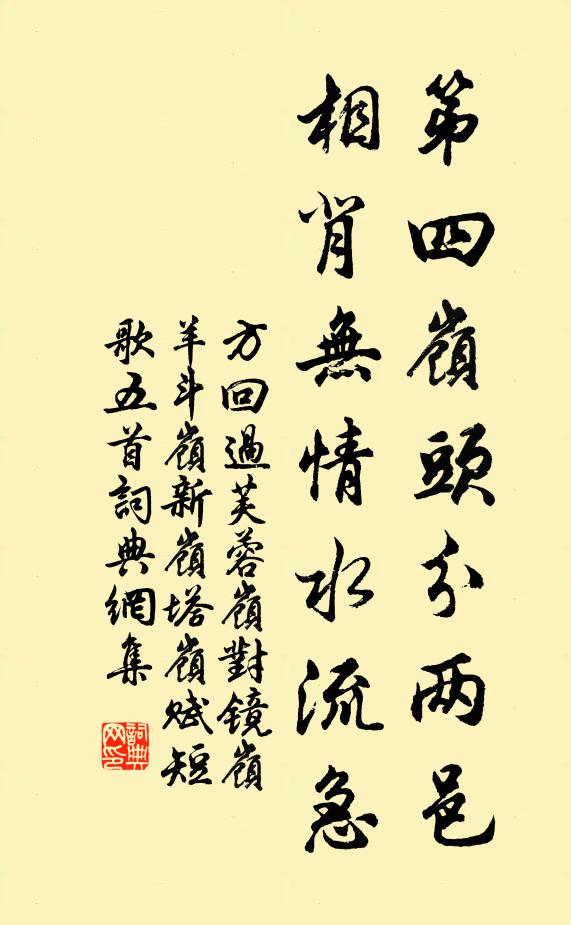 第四嶺頭分两邑
相背無情水流急
方回過芙蓉嶺對鏡嶺
羊斗嶺新嶺塔嶺赋短
歌五首詞典網集
詞典
网印